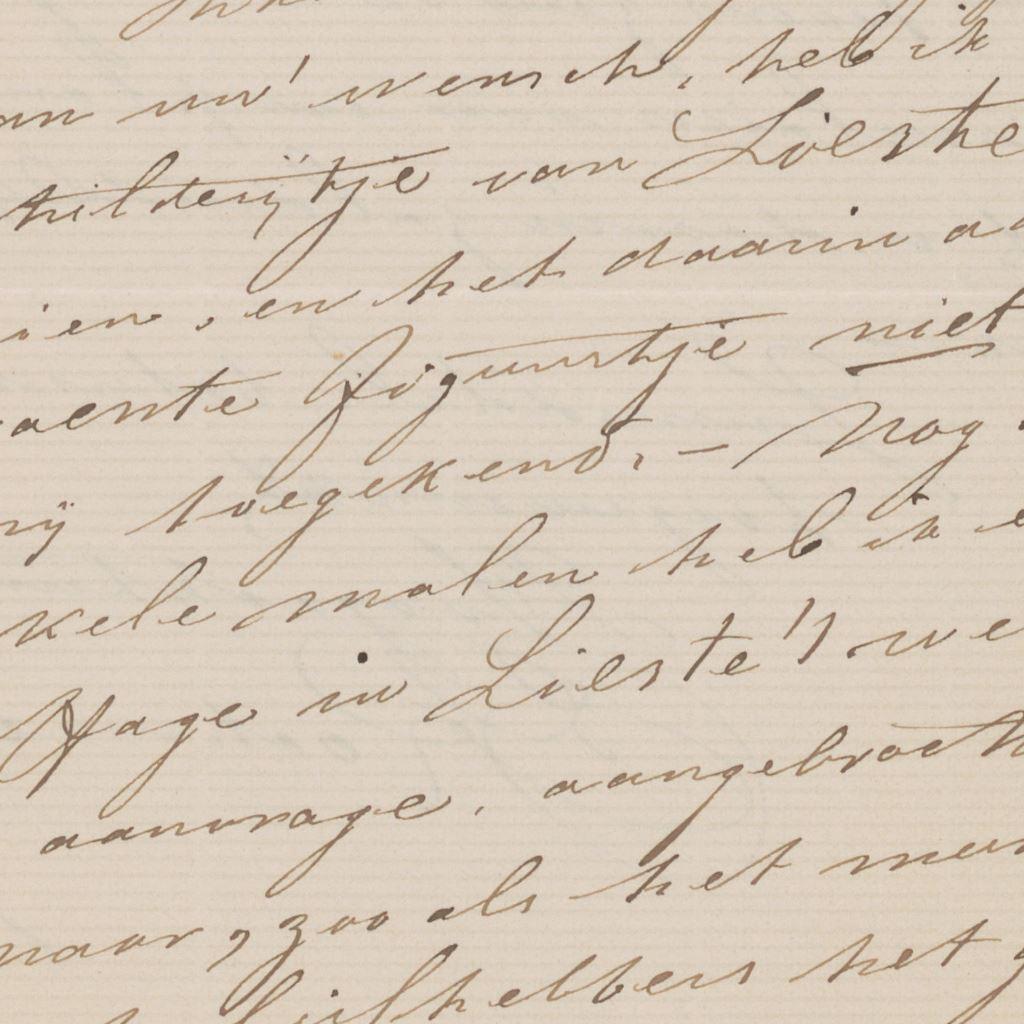 an uw' wensch, heb ik
hilderijtje van Lieste
ien, en het daarin aa
aerste figuurtje niet
rij toegekend, - Nog
kele malen heb ik e
Hage in Lieste's we
aanvrage, aangebracht
maar, zoo als het meer
liefhebbers het g